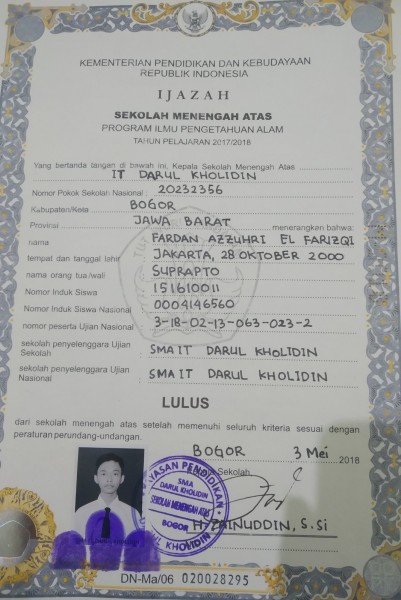 KEMENTERIAN PENDIDIKAN DAN KEBUDAYAAN
REPUBLIK INDONESIA
IJAZAH
SEKOLAH MENENGAH ATAS
PROGRAM ILMU PENGETAHUAN ALAM
TAHUN PELAJARAN 2017/2018
Yang bertanda tangan di bawah ini, Kepala Sekolah Menengah Atas
IT DARUL KHOLIDIN
Nomor Pokok Sekolah Nasional : 20232356
Kabupaten/Kota BOGOR
Provinsi JAWA BARAT menerangkan bahwa:
nama FARDAN AZZUHRI EL FARIZQI
tempat dan tanggal lahir JAKARTA, 28 OKTOBER 2000
nama orang tua/wali SUPRAPTO
Nomor Induk Siswa 151610011
Nomor Induk Siswa Nasional 0004146560
nomor peserta Ujian Nasional 3-18-02-13-063-023-2
sekolah penyelenggara Ujian
Sekolah SMAIT DARUL KHOLIDIN
sekolah penyelenggara Ujian
Nasional SMAIT DARUL KHOLIDIN
LULUS
dari sekolah menengah atas setelah memenuhi seluruh kriteria sesuai dengan
peraturan perundang-undangan.
BOGOR 3 Mei 2018
Sekolah,
YAYASAN PENDIDIKAN
SMA
DARUL KHOLIDIN
SEKOLAH MENENGAH ATAS
BOGOR
DARUL KHOLIDIN
H. ZAINUDDIN, S.Si
DN-Ma/06 020028295